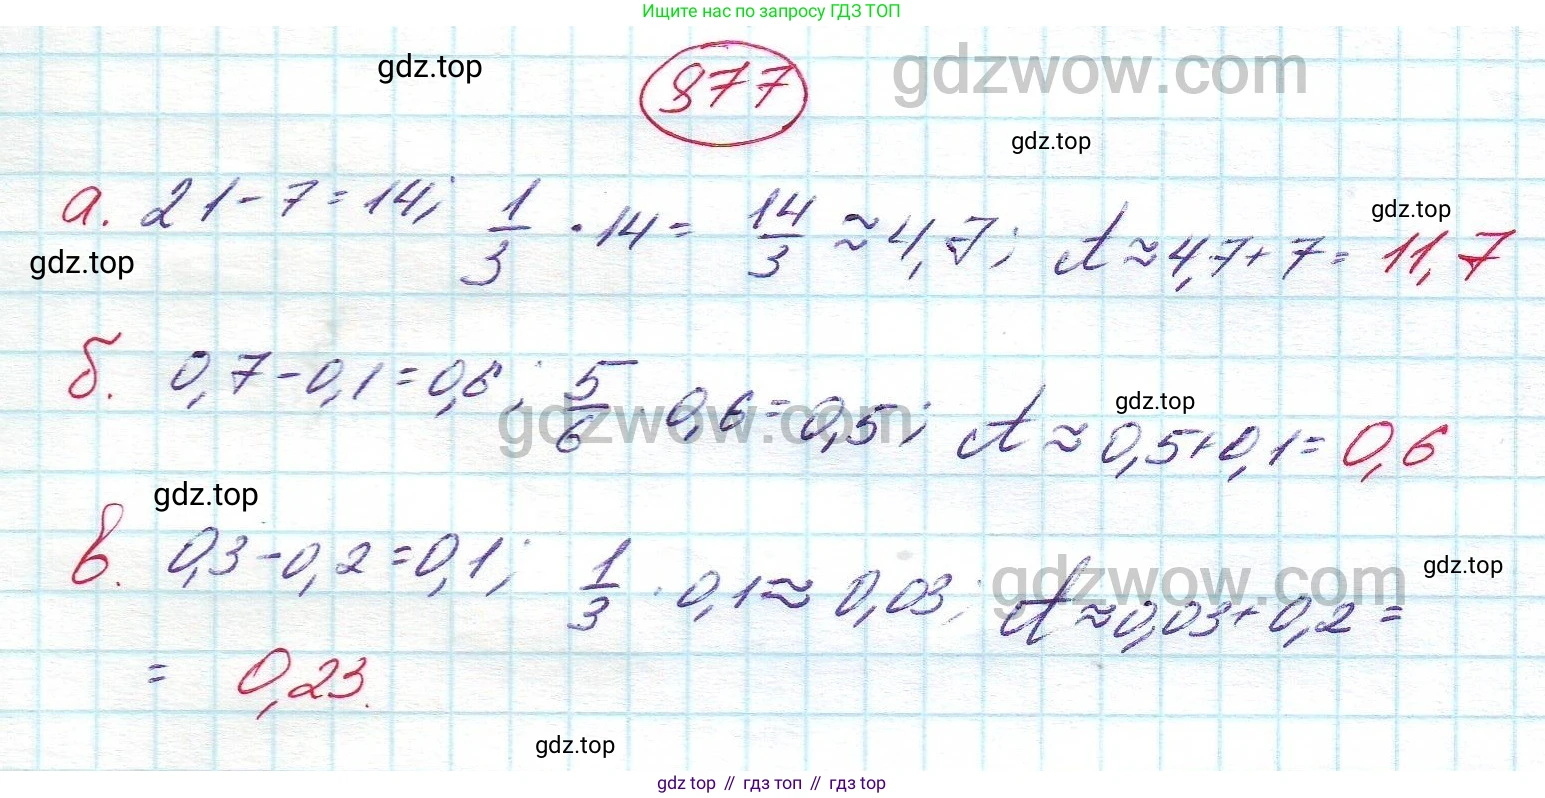 Ищите нас по запросу ГДЗ ТОП
gdz.top
877
gdzwow.com
gdz.top
а. 21 - 7 = 14; 1/3 · 14 = 14/3 ≈ 4,7; A ≈ 4,7 + 7 = 11,7
gdz.top
gdz.top
б. 0,7 - 0,1 = 0,6; 5/6 · 0,6 = 0,5; A ≈ 0,5 + 0,1 = 0,6
gdz.top
gdzwow.com
gdz.top
в. 0,3 - 0,2 = 0,1; 1/3 · 0,1 ≈ 0,03; A ≈ 0,03 + 0,2 =
gdz.top
gdzwow.com
= 0,23.
gdz.top
gdz top // гдз топ // gdz top